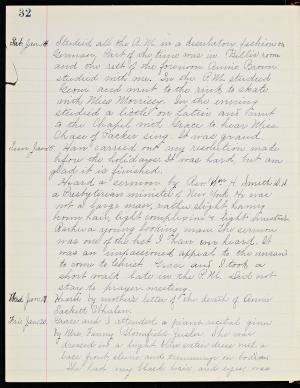 32
Sat. Jan. 14 Studied all the A.M. in a desultory fashion on
German. Part of the time was in Billie's room
and the rest of the forenoon Annie Brown
studied with me. In the P.M. studied
Geom and went to the rink to skate
with Miss Morrissy. In the evening
studied a little on Latin and went
to the Chapel with Grace to hear Miss
Chase of Packer sing. It was grand.
Sun. Jan. 15. Have carried out my resolution made
before the holidays. It was hard, but am
glad it is finished.
Heard a sermon by Rev. Wm. H. Smith D.D.
a Presbyterian minister of New York. He was
not a large man, rather slight having
brown hair, light complexion & light
Rather a young looking man. The sermon
was one of the best I have ever heard. It
was an impassioned appeal to the unsaved
to come to Christ. Grace and I took a
short walk late in the P.M. Did not
stay to prayer meeting.
Wed. Jan. 18 Heard by mother's letter of the death of Anna
Sackett Whalen.
Fri. Jan. 20. Grace and I attended a piano recital given
by Mrs. Fanny Bloomfield Zeisler. She was
dressed in a light blue satin dress with a
lace front, sleeves and trimmings on bodice.
She had jet black hair and eyes, was